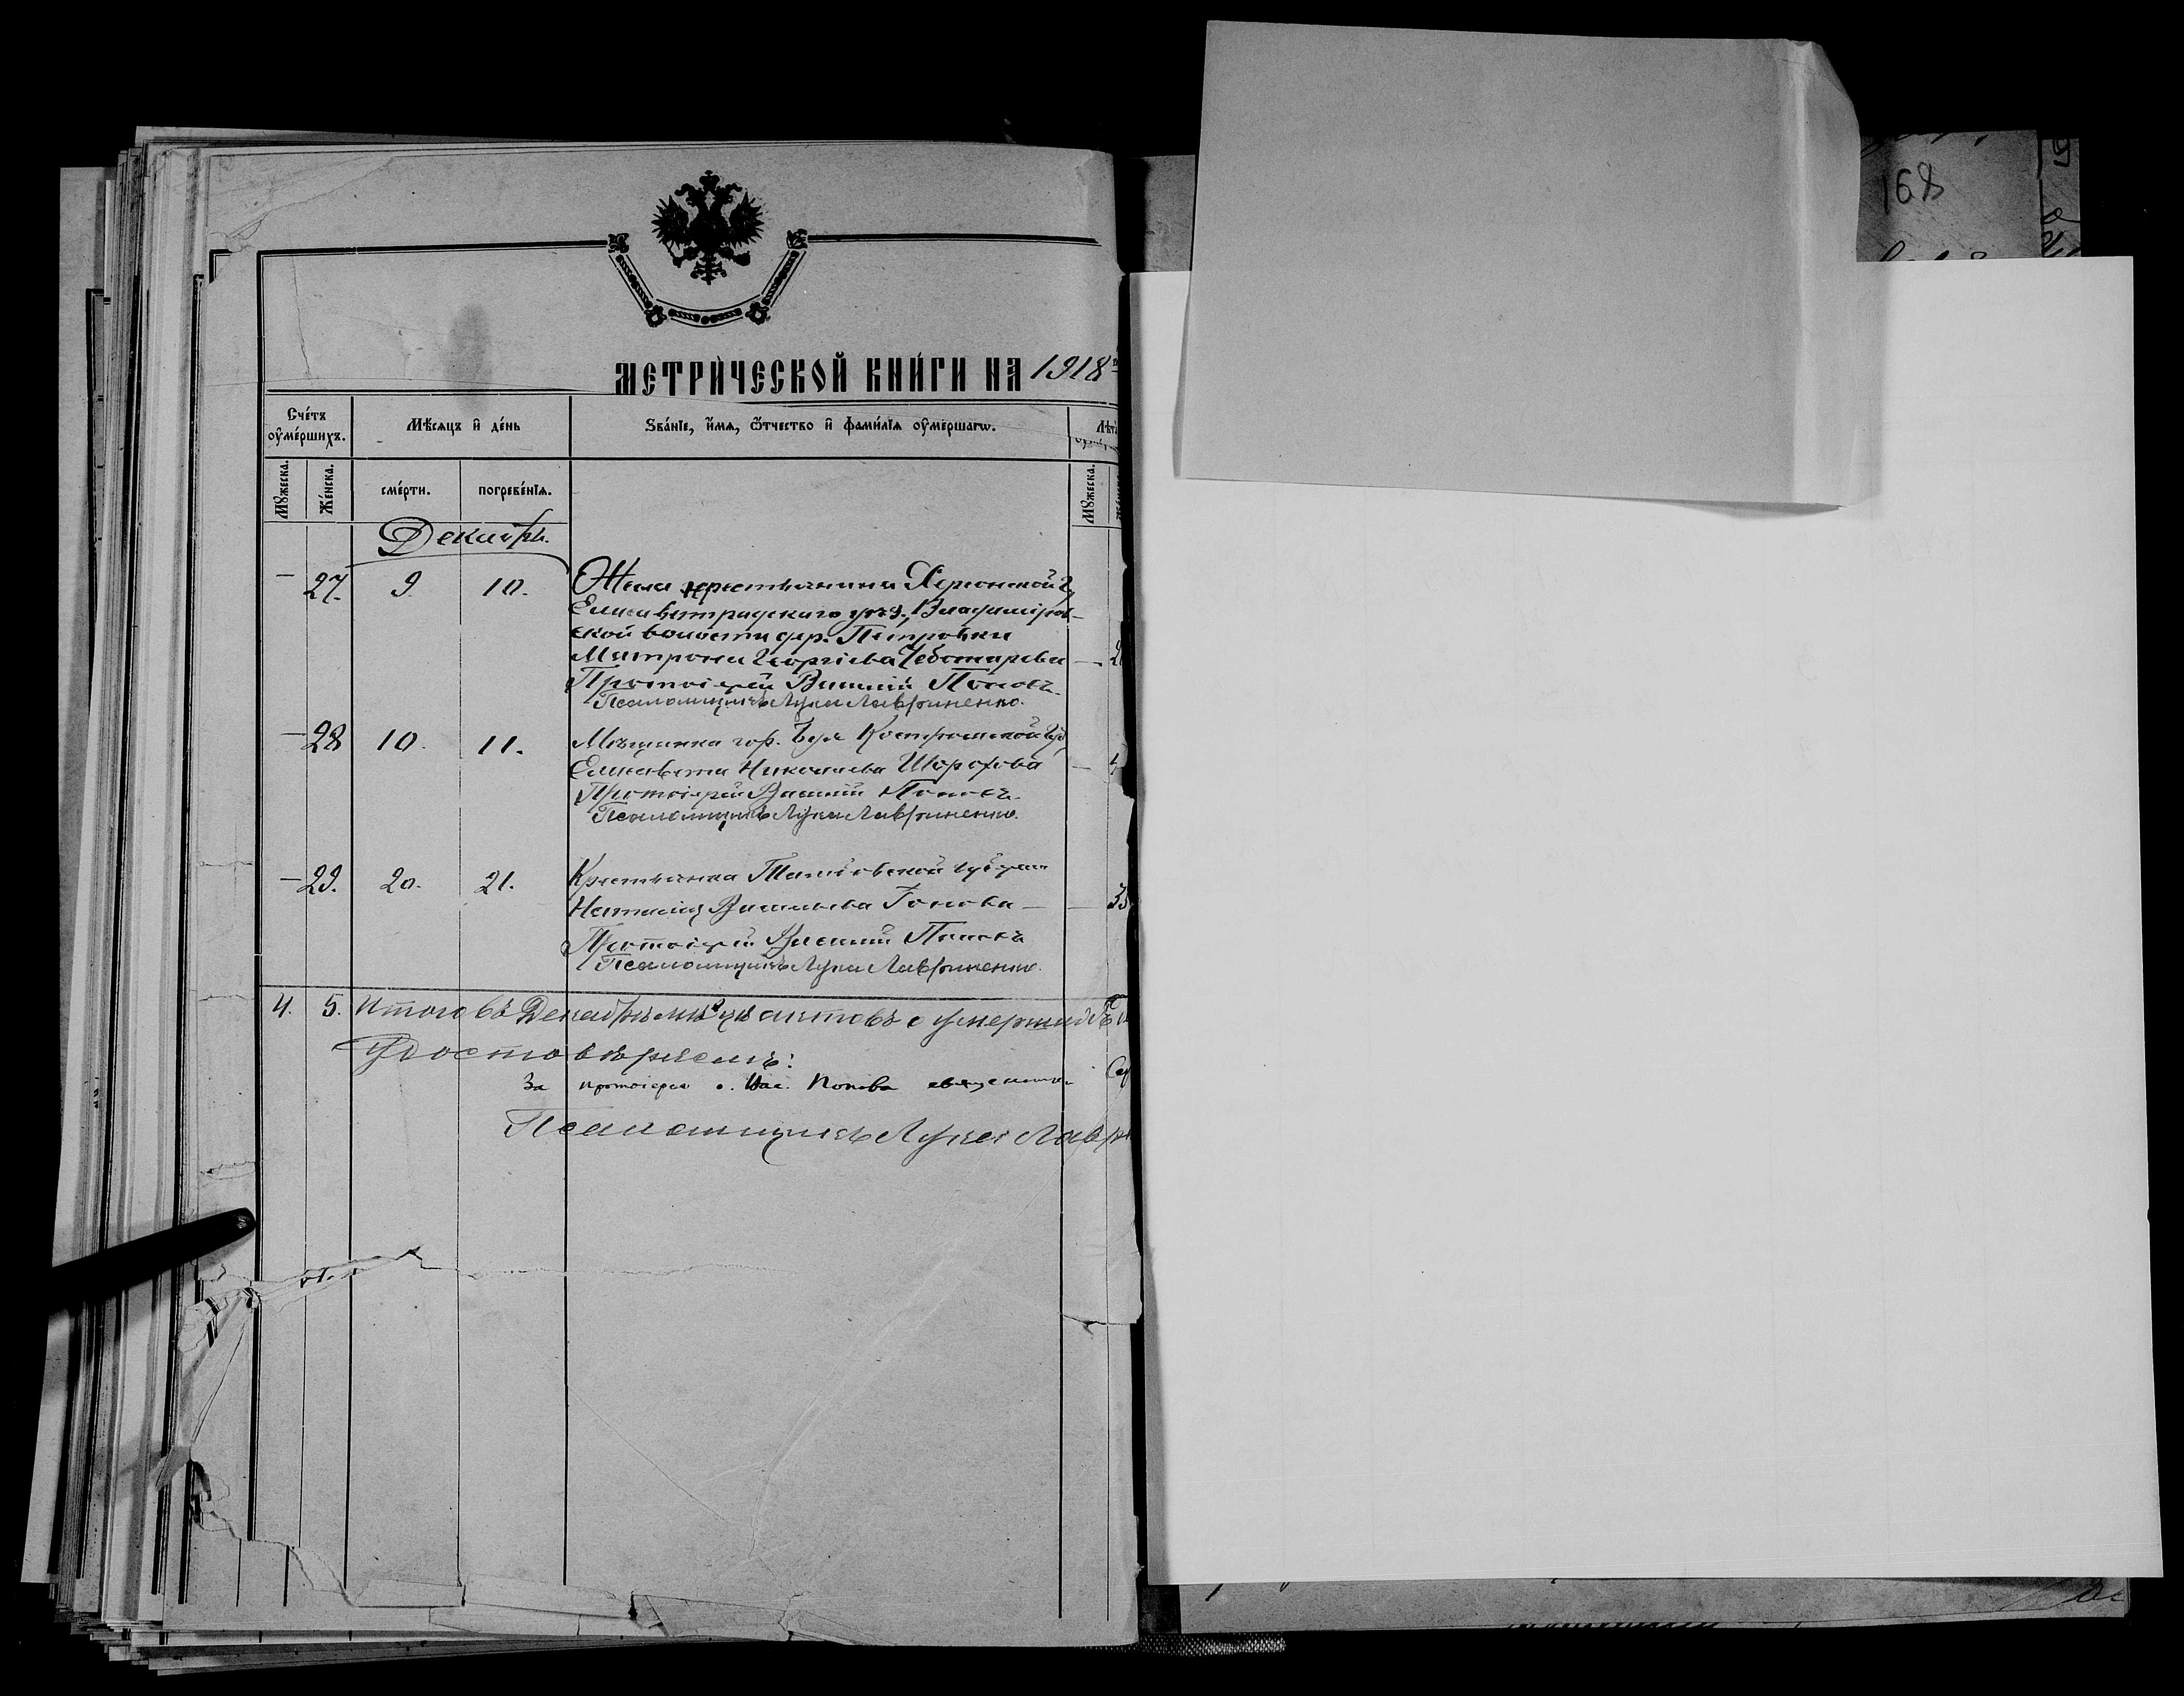 МЕТРИ́ЧЕСКОЙ КНИ́ГИ НА 1918
Сче́тъ ѹ҆ме́ршихъ.
Мѣ́сяцъ и҆ де́нь
Зва́нїе, и҆́мѧ, ѻ҆́тчество и҆ фами́лїѧ ѹ҆ме́ршагѡ.
Лѣт
Мꙋ́жеска.
Же́нска.
сме́рти.
погребе́нїѧ.
Мꙋ́жеска.
Декабрь.
— 27. 9. 10. Жена крестьянина Херсонской г.
Елисаветградскаго уѣз., Владимiров-
ской волости дер. Петровки
Матрона Георгiева Чеботарева — 2
Протоiерей Василiй Поповъ.
Псаломщикъ Лука Лавриненко.
— 28 10. 11. Мѣщанка гор. Буя Костромской губ.
Елисавета Николаева Шорохова —
Протоiерей Василiй Поповъ.
Псаломщикъ Лука Лавриненко.
— 29. 20. 21. Крестьянка Тамбовской губернiи
Наталiя Васильева Гонова — 33
Протоiерей Василiй Поповъ
Псаломщикъ Лука Лавриненко.
4. 5. Итого въ Декабрѣ м-цѣ актовъ о умершихъ
Удостовѣряемъ:
За протоiерея о. Вас. Попова священник
Псаломщикъ Лука Лавр
168